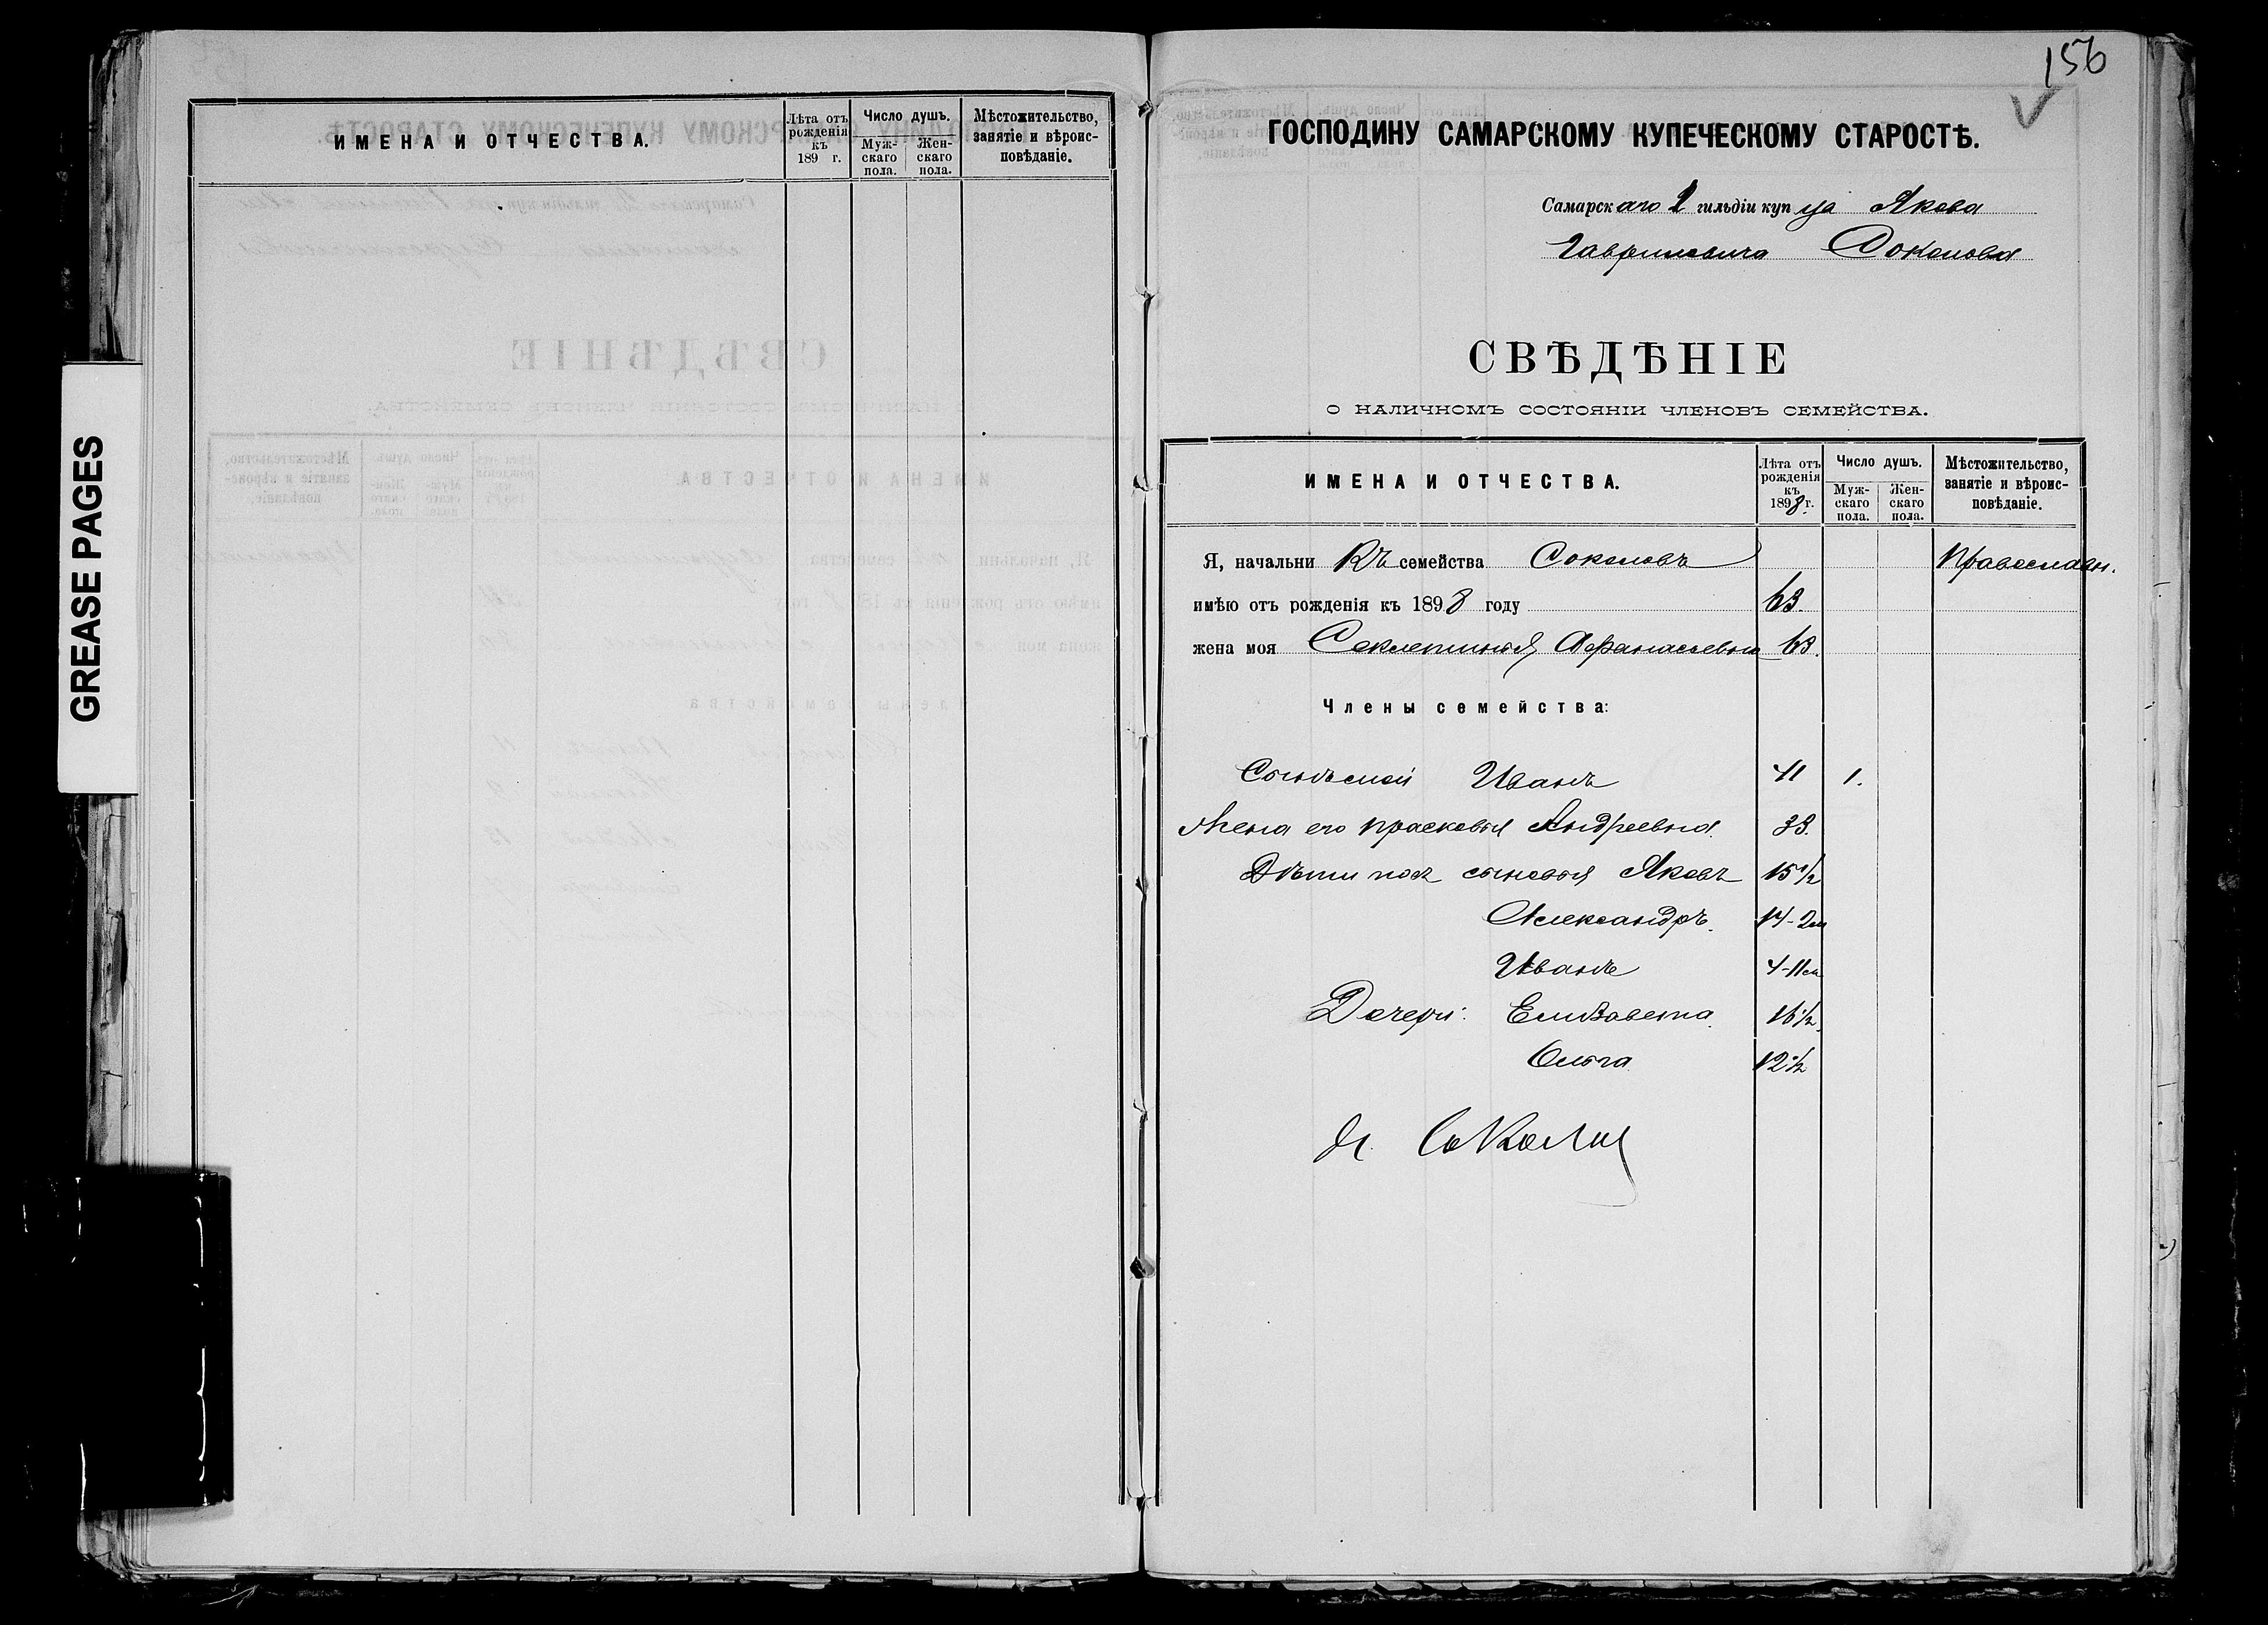 GREASE PAGES
ИМЕНА И ОТЧЕСТВА.
Лѣта отъ рожденія къ 189 г.
Число душъ.
Мужскаго пола.
Женскаго пола.
Мѣстожительство, занятіе и вѣроисповѣданіе.
156
ГОСПОДИНУ САМАРСКОМУ КУПЕЧЕСКОМУ СТАРОСТѢ.
Самарскаго 2 гильдіи купца Якова
Гавриловича Соколова
СВѢДѢНІЕ
О НАЛИЧНОМЪ СОСТОЯНІИ ЧЛЕНОВЪ СЕМЕЙСТВА.
ИМЕНА И ОТЧЕСТВА.
Лѣта отъ рожденія къ 1898 г.
Число душъ.
Мужскаго пола.
Женскаго пола.
Мѣстожительство, занятіе и вѣроисповѣданіе.
Я, начальникъ семейства Соколовъ Православн.
имѣю отъ рожденія къ 1898 году 63.
жена моя Секлетинья Афанасьевна 63.
Члены семейства:
Сынъ мой Иванъ 41 1.
Жена его Прасковья Андреевна 33.
Дѣти сыновья Яковъ 15 1/2
Александръ. 14-2м
Иванъ 4-11м
Дочери: Елизавета 16 1/2
Ольга 12 1/2